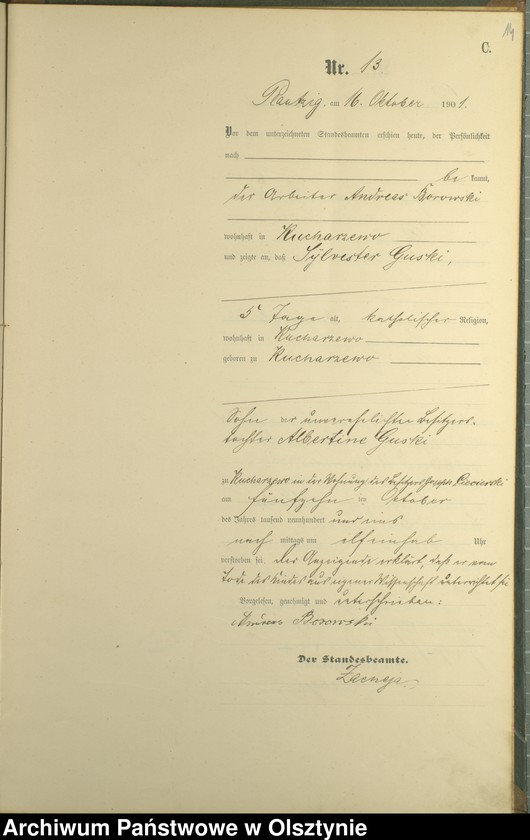 14
C.
Nr. 13
am 16. Oktober 1901.
Vor dem unterzeichneten Standesbeamten erschien heute, der Persönlichkeit
nach
be kannt,
der Arbeiter Andreas Borowski
wohnhaft in Kucharzewo
und zeigte an, daß Sylvester Guski,
5 Tage alt, katholischer Religion,
wohnhaft in Kucharzewo
geboren zu Kucharzewo
Sohn der unverehelichten Besitzers-
tochter Albertine Guski
zu Kucharzewo in der Wohnung des Besitzers Joseph
am fünfzehn ten Oktober
des Jahres tausend neunhundert und eins
nach mittags um elfeinhalb Uhr
verstorben sei. Der Anzeigende erklärt, daß er vom
Tode des Kindes aus eigener Wissenschaft unterrichtet sei
Vorgelesen, genehmigt und unterschrieben:
Andreas Borowski
Der Standesbeamte.
Archiwum Państwowe w Olsztynie